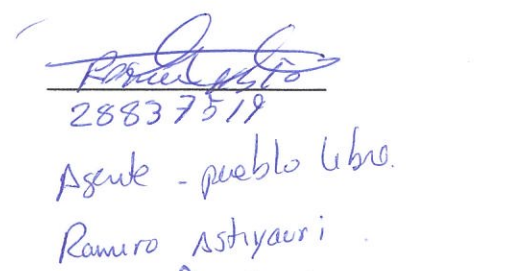 28837519
Agente - pueblo libre.
Ramiro Astiyauri